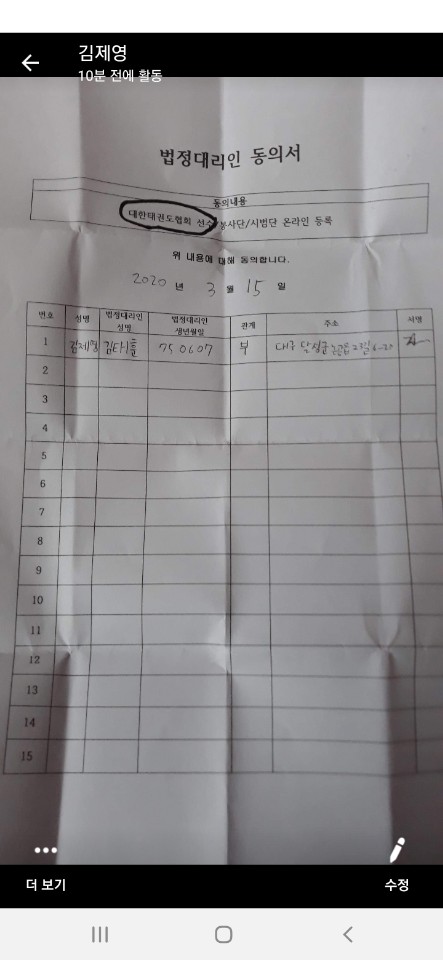 김제영
10분 전에 활동
법정대리인 동의서
동의내용
대한태권도협회 선수/봉사단/시범단 온라인 등록
위 내용에 대해 동의합니다.
2020 년 3 월 15 일
번호 성명 법정대리인 성명 법정대리인 생년월일 관계 주소 서명
1 김제영 750607 부 대구 달성군
2
3
4
5
6
7
8
9
10
11
12
13
14
15
더 보기 수정